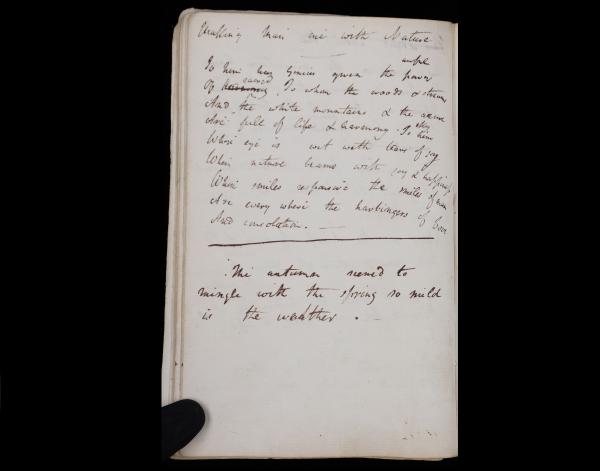 Making Man one with Nature
ample
To him has Genius given the power
sacred
Of harmony. To whom the woods & streams
And the white mountains & the azure
sky
Are full of life & harmony. To him
Whose eye is wet with tears of joy
When nature beams with joy & happiness
When smiles responsive the smiles of man
Are every where the harbingers of love
And consolation. —
The autumn seemed to
mingle with the spring so mild
is the weather . —